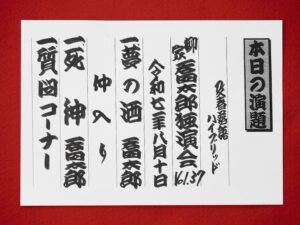 本日の演題
ハイブリッド
柳家喬太郎独演会
令和七年八月十日
一夢の酒 喬太郎
仲入り
一死神 喬太郎
一質問コーナー